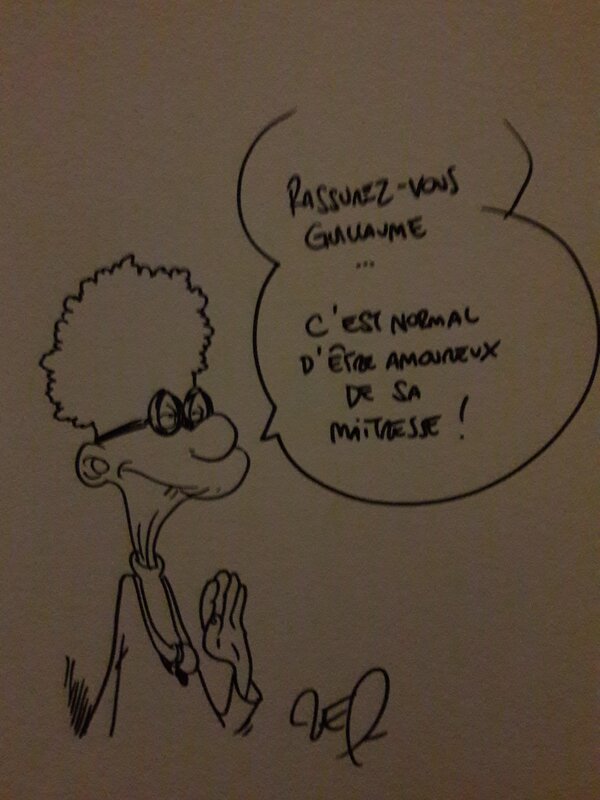 RASSUREZ-VOUS
GUILLAUME
...
C'EST NORMAL
D'ÊTRE AMOUREUX
DE SA
MAÎTRESSE !
ZEP